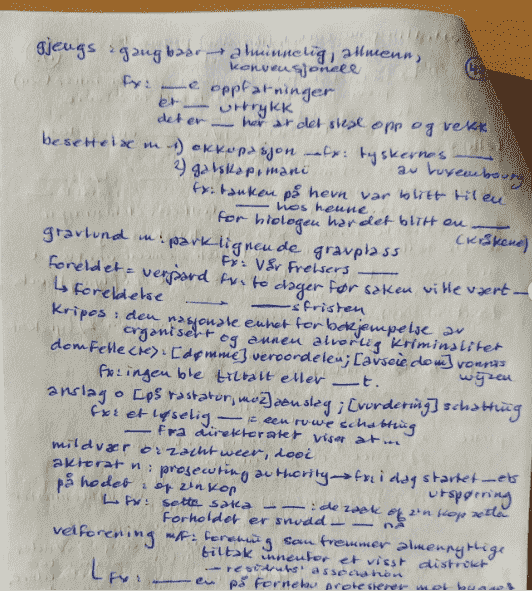 gjengs : gangbaar → alminnelig, allmenn,
konvensjonell
fx: ___e oppfatninger
et ___ uttrykk
det er ___ her at det skal opp og vekk
besettelse m 1) okkupasjon → fx: tyskernes ___
av Luxembourg
2) galskap, mani
fx: tanken på hevn var blitt til en
___ hos henne
for biologen har det blitt en ___
(kråkene)
gravlund m : parklignende gravplass
fx: Vår Frelsers ___
foreldet = verjaard fx: to dager før saken ville vært ___
↳ foreldelse → ___sfristen
Kripos : den nasjonale enhet for bekjempelse av
organisert og annen alvorlig kriminalitet
domfelle <te> : [dømme] veroordelen ; [avsie dom] vonnis
wijzen
fx: ingen ble tiltalt eller ___t.
anslag o [på tastatur, muz] aanslag ; [vurdering] schatting
fx: et løselig ___ = een ruwe schatting
___ fra direktoratet viser at ...
mildvær o : zacht weer, dooi
aktorat n : prosecuting authority → fx: i dag startet ___ets
utspørring
på hodet : op z'n kop
↳ fx: sette saka _ _ : de zaak op z'n kop zetten
Forholdet er snudd _ _ nå
velforening m/f : forening som fremmer almennyttige
tiltak innenfor et visst distrikt
– residents' association
↳ fx: ___en på Fornebu protesterer mot